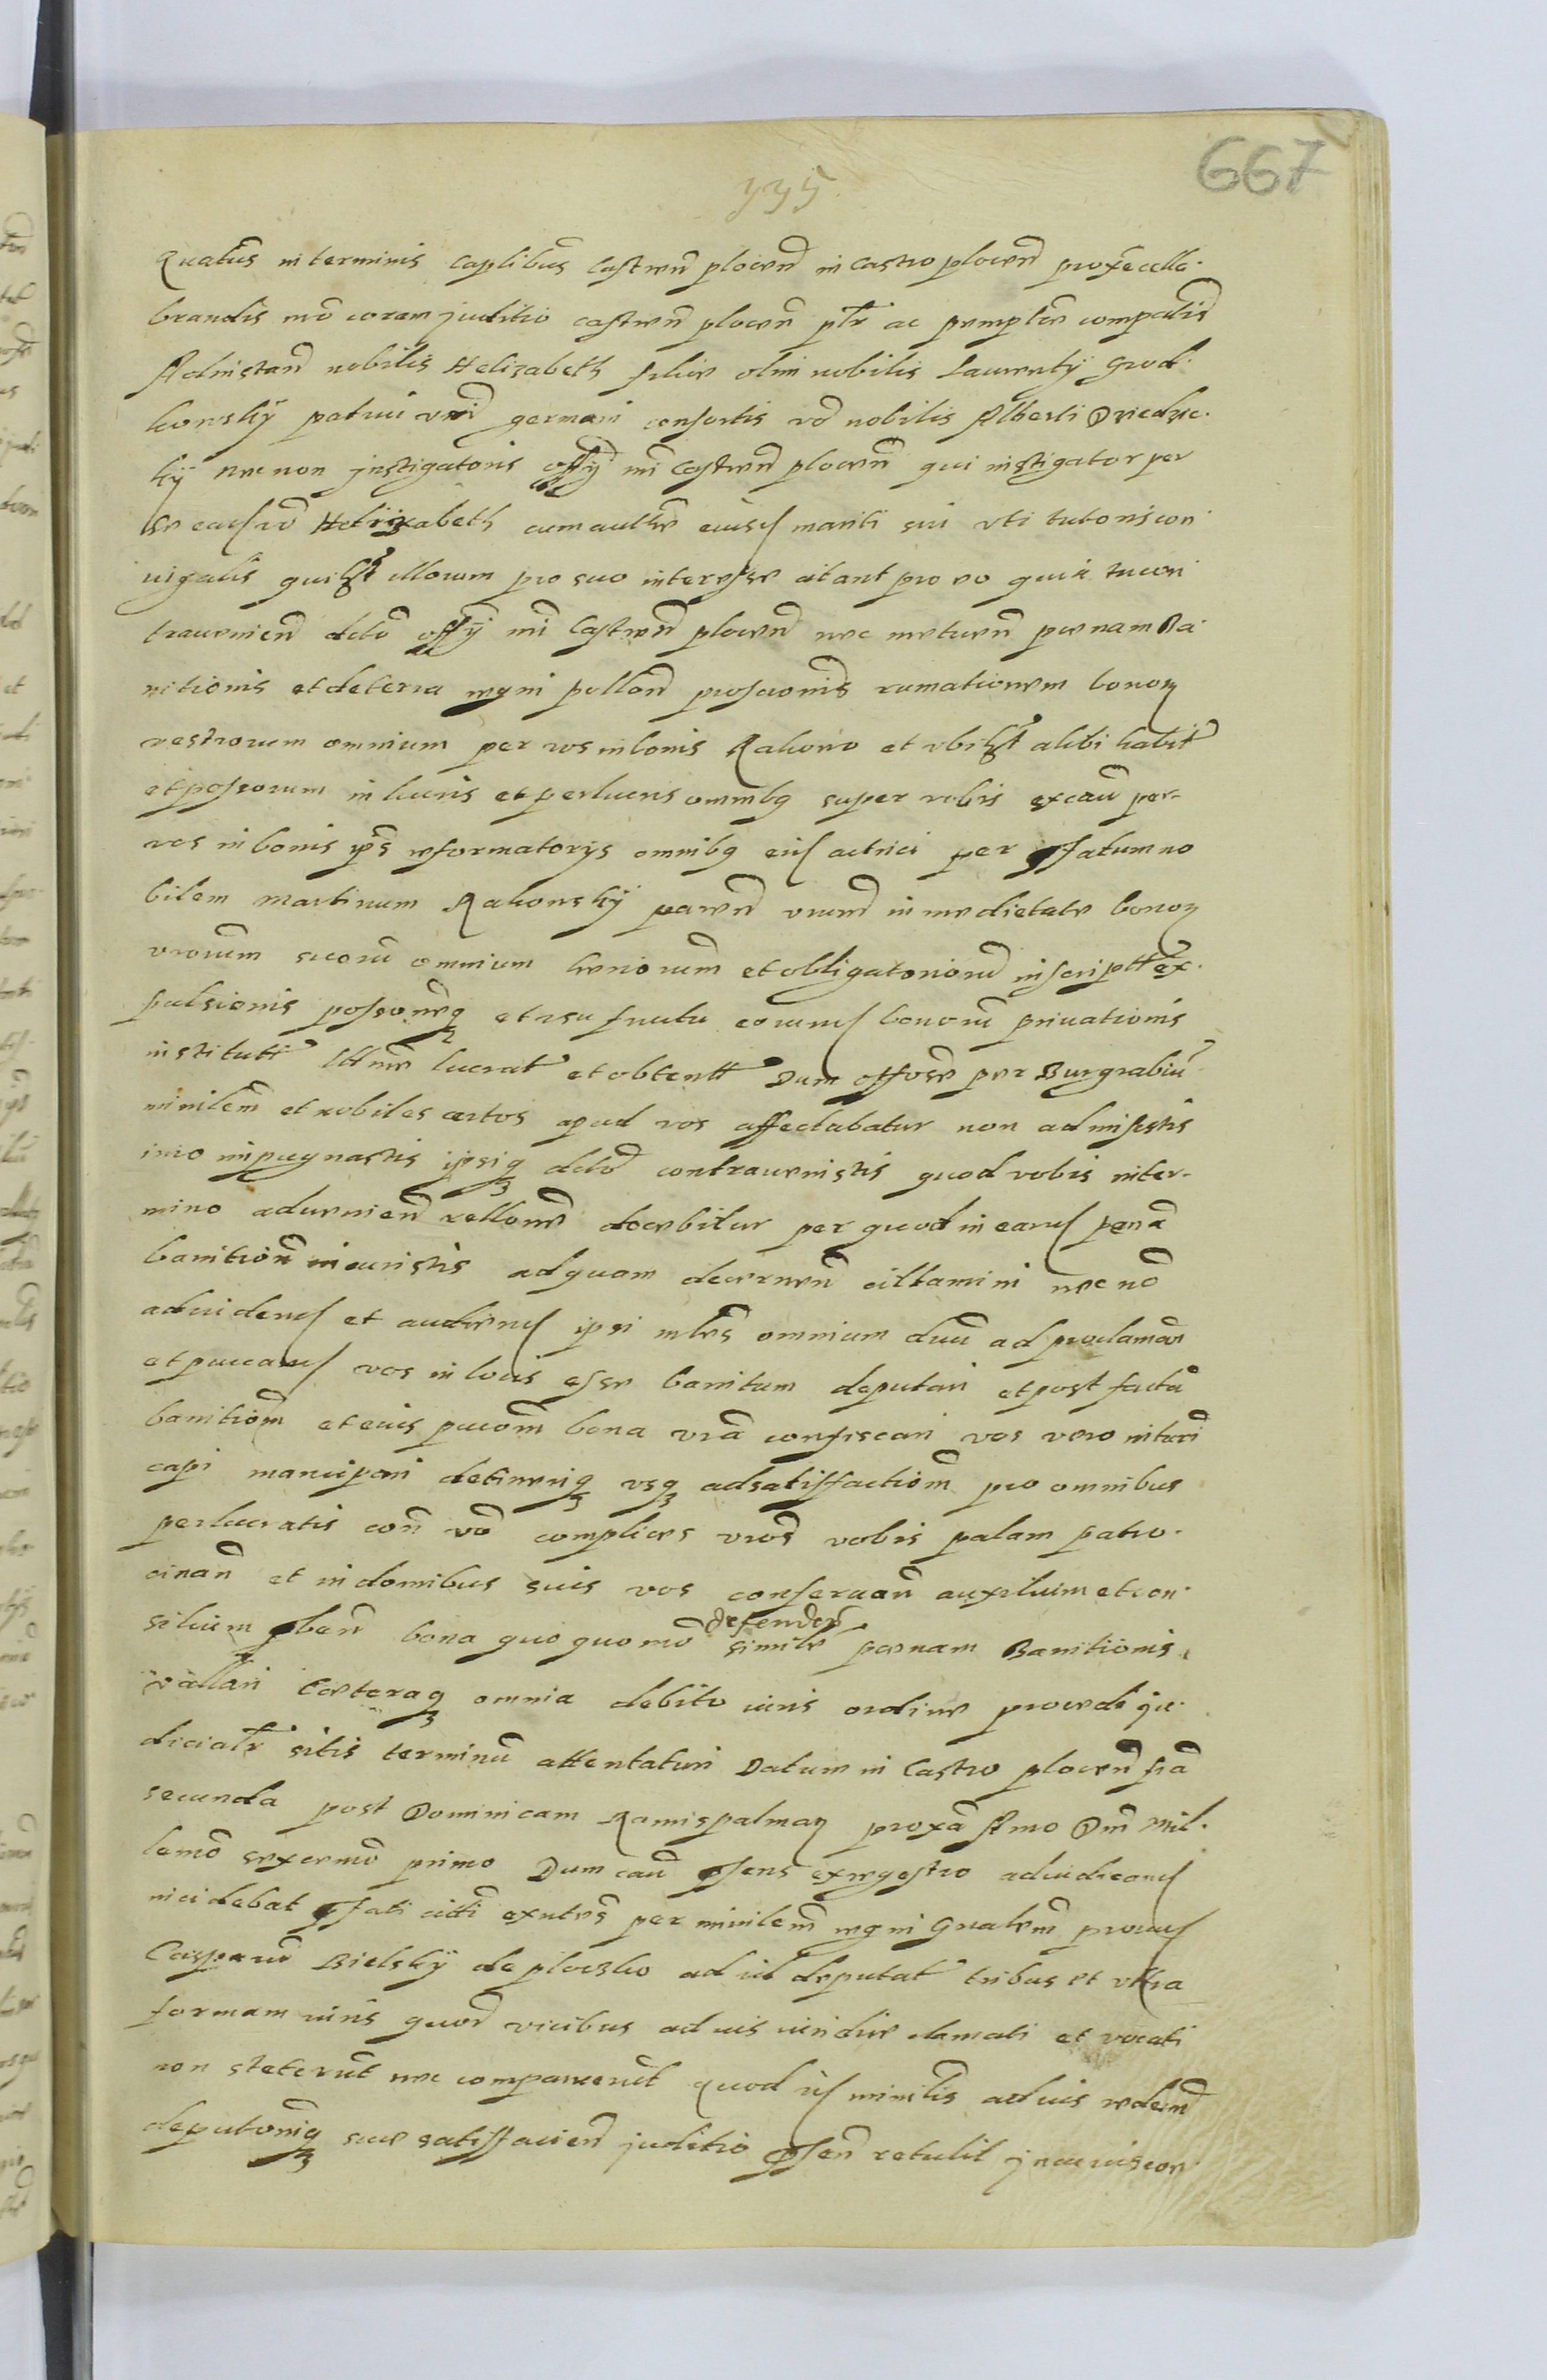 667
335
Quatus in terminis Captibus Castren plocen in Castro plocen proxe cele-
brandis mo coram juditio castren plocen ptr ac peremptorie compatis
Ad instan nobilis Helizabeth filie olim nobilis Laurenty Grod-
kowsky patrui germani consortis vo nobilis Alberti
ky nec non jnstigatoris offy mi Castren plocen qui instigator per
se Helizabeth cum authe eiusd mariti sui vti tutoris con-
iugalis quilibet illorum pro suo interesse citant pro eo quia tu con-
trauenien dcto offy mi Castren plocen nec metuen poenam Ba-
nitionis et de terra regni pellen bonorum
vestrorum omnium per vos in bonis Rakowo et vbilibet alibi habit
et possorum in lucris et perlucris omnibus super vobis ex cau per
vos in bonis ijs reformatorys omnibus eisd actrici per psatum no
bilem Martinum Rakowsky paren vrum in medietate bonorum
vrorum suoru omnium hereorum et obligatoriorum inscriptt ex-
pulsionis possoneque et vsu fructu eorumd bonoru priuationis
institutt lttme lucrat et obtentt Dum offose per Burgrabiu
minilem et nobiles certos apud vos affectabatur non admisistis
imo impugnastis ipsique dcto contrauenistis quod vobis in ter-
mino aduenien rellone docebitur per quod in eand pena
banitionis incuristis ad quam decernen cittamini nec no
ad videnf et audienf ipsi mles omnium ad proclaman
et puccand vos in locis esse banitum deputari et post facta
banitiom et eius pucom bona vra confiscari vos vero
capi mancipari detinerique vsque ad satisfactiom pro omnibus
perlucratis con vo complices vros vobis palam patro-
cinan et in domibus suis vos conseruan auxilium et con-
silium pben bona quo quo mo defenden simile poenam Banitionis
vallari Ceteraque omnia debito iuris ordine procede ju-
diciatr sitis terminu attentaturi Datum in Castro plocen fra
secunda post Dominicam Ramispalmarum proxa Anno Dni Mil-
lemo sexcemo primo Dum cau psens ex regestro ad iudicand
incidebat psati citti exntes per minilem regni Gnalem prouid
Casparu Bielsky de ploczko ad id deputat tribus et vltra
formam iuris quor vicibus ad ius iuridice clamati et vocati
non steterut nec comparuerut Quod id minilis ad ius redeun
deputonique sue satisfacien juditio psen retulit jn cuius con-